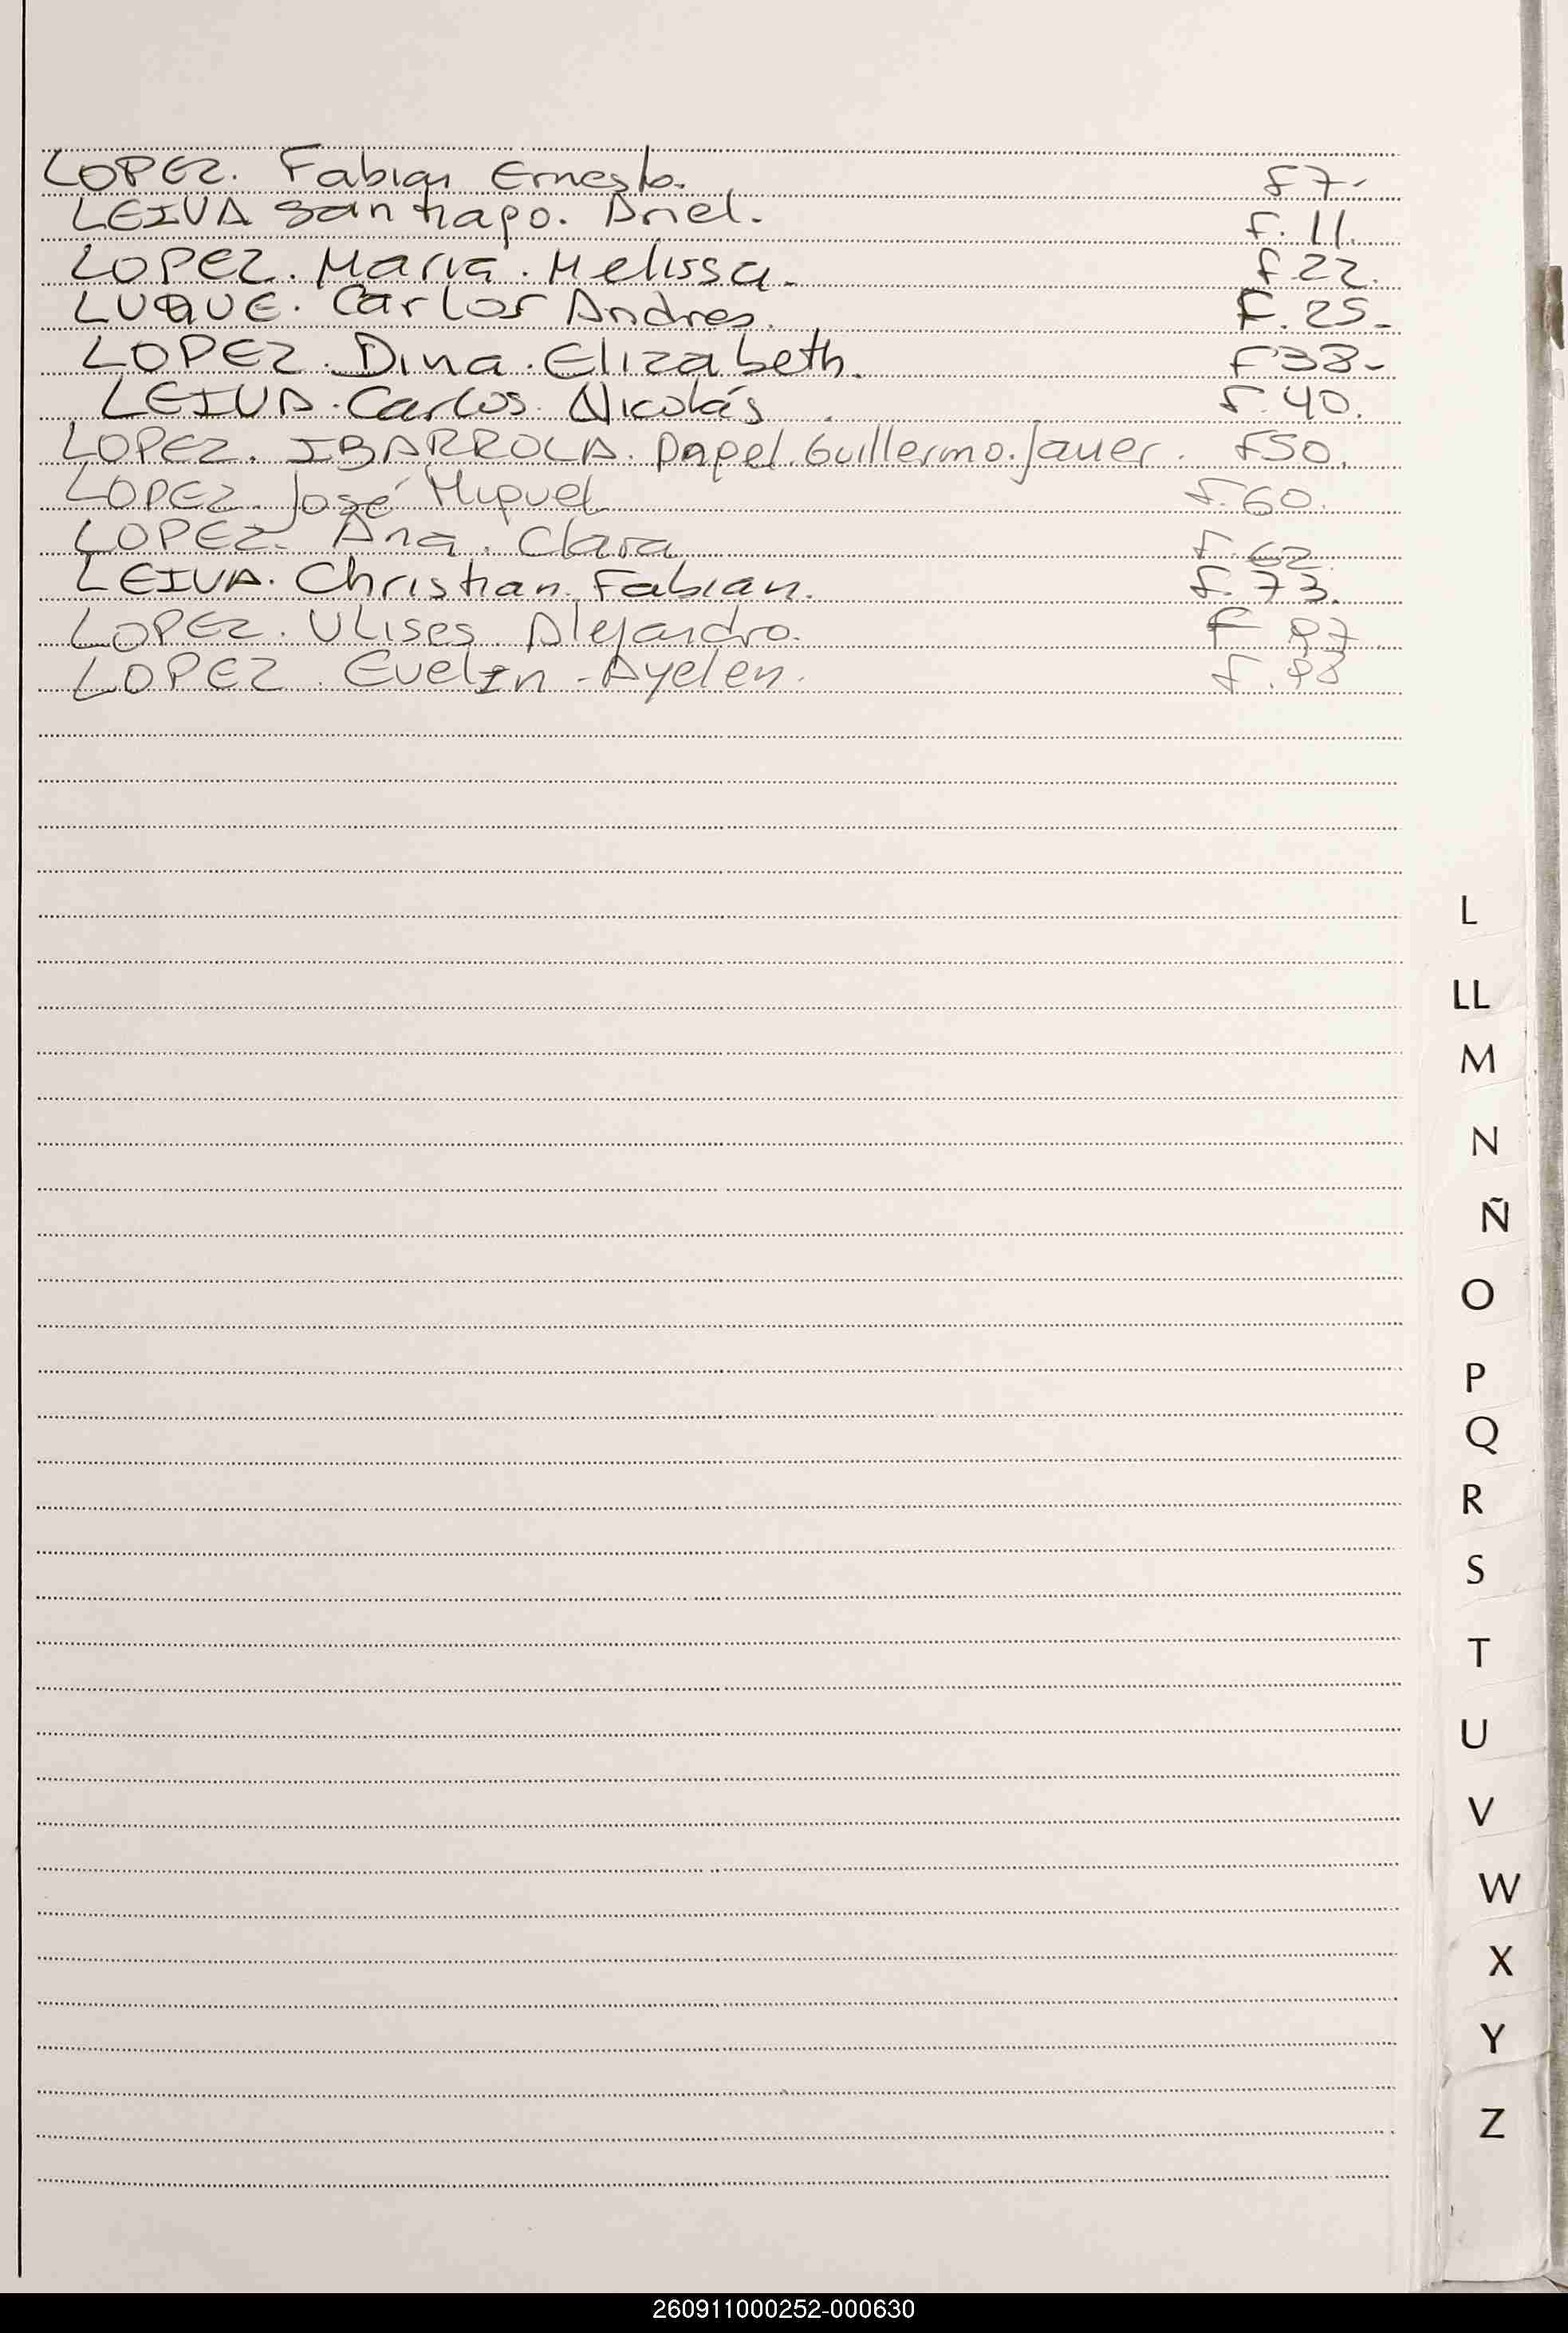 LOPEZ. Fabian Ernesto. f 7.
LEIVA Santiago. Ariel. F. 11.
LOPEZ. Maria. Melissa. f 22.
LUQUE. Carlos Andres. F. 25.
LOPEZ. Dina. Elizabeth. F 38-
LEIVA. Carlos. Nicolás. f. 40.
LOPEZ. IBARROLA. Guillermo. Javier. F50.
LOPEZ. José Miguel f. 60.
LOPEZ. Ana. Clara f. 62.
LEIVA. Christian. Fabian. f. 73.
LOPEZ. Ulises. Alejandro. F
LOPEZ. Evelin - Ayelen. f.
L
LL
M
N
Ñ
O
P
Q
R
S
T
U
V
W
X
Y
Z
260911000252-000630